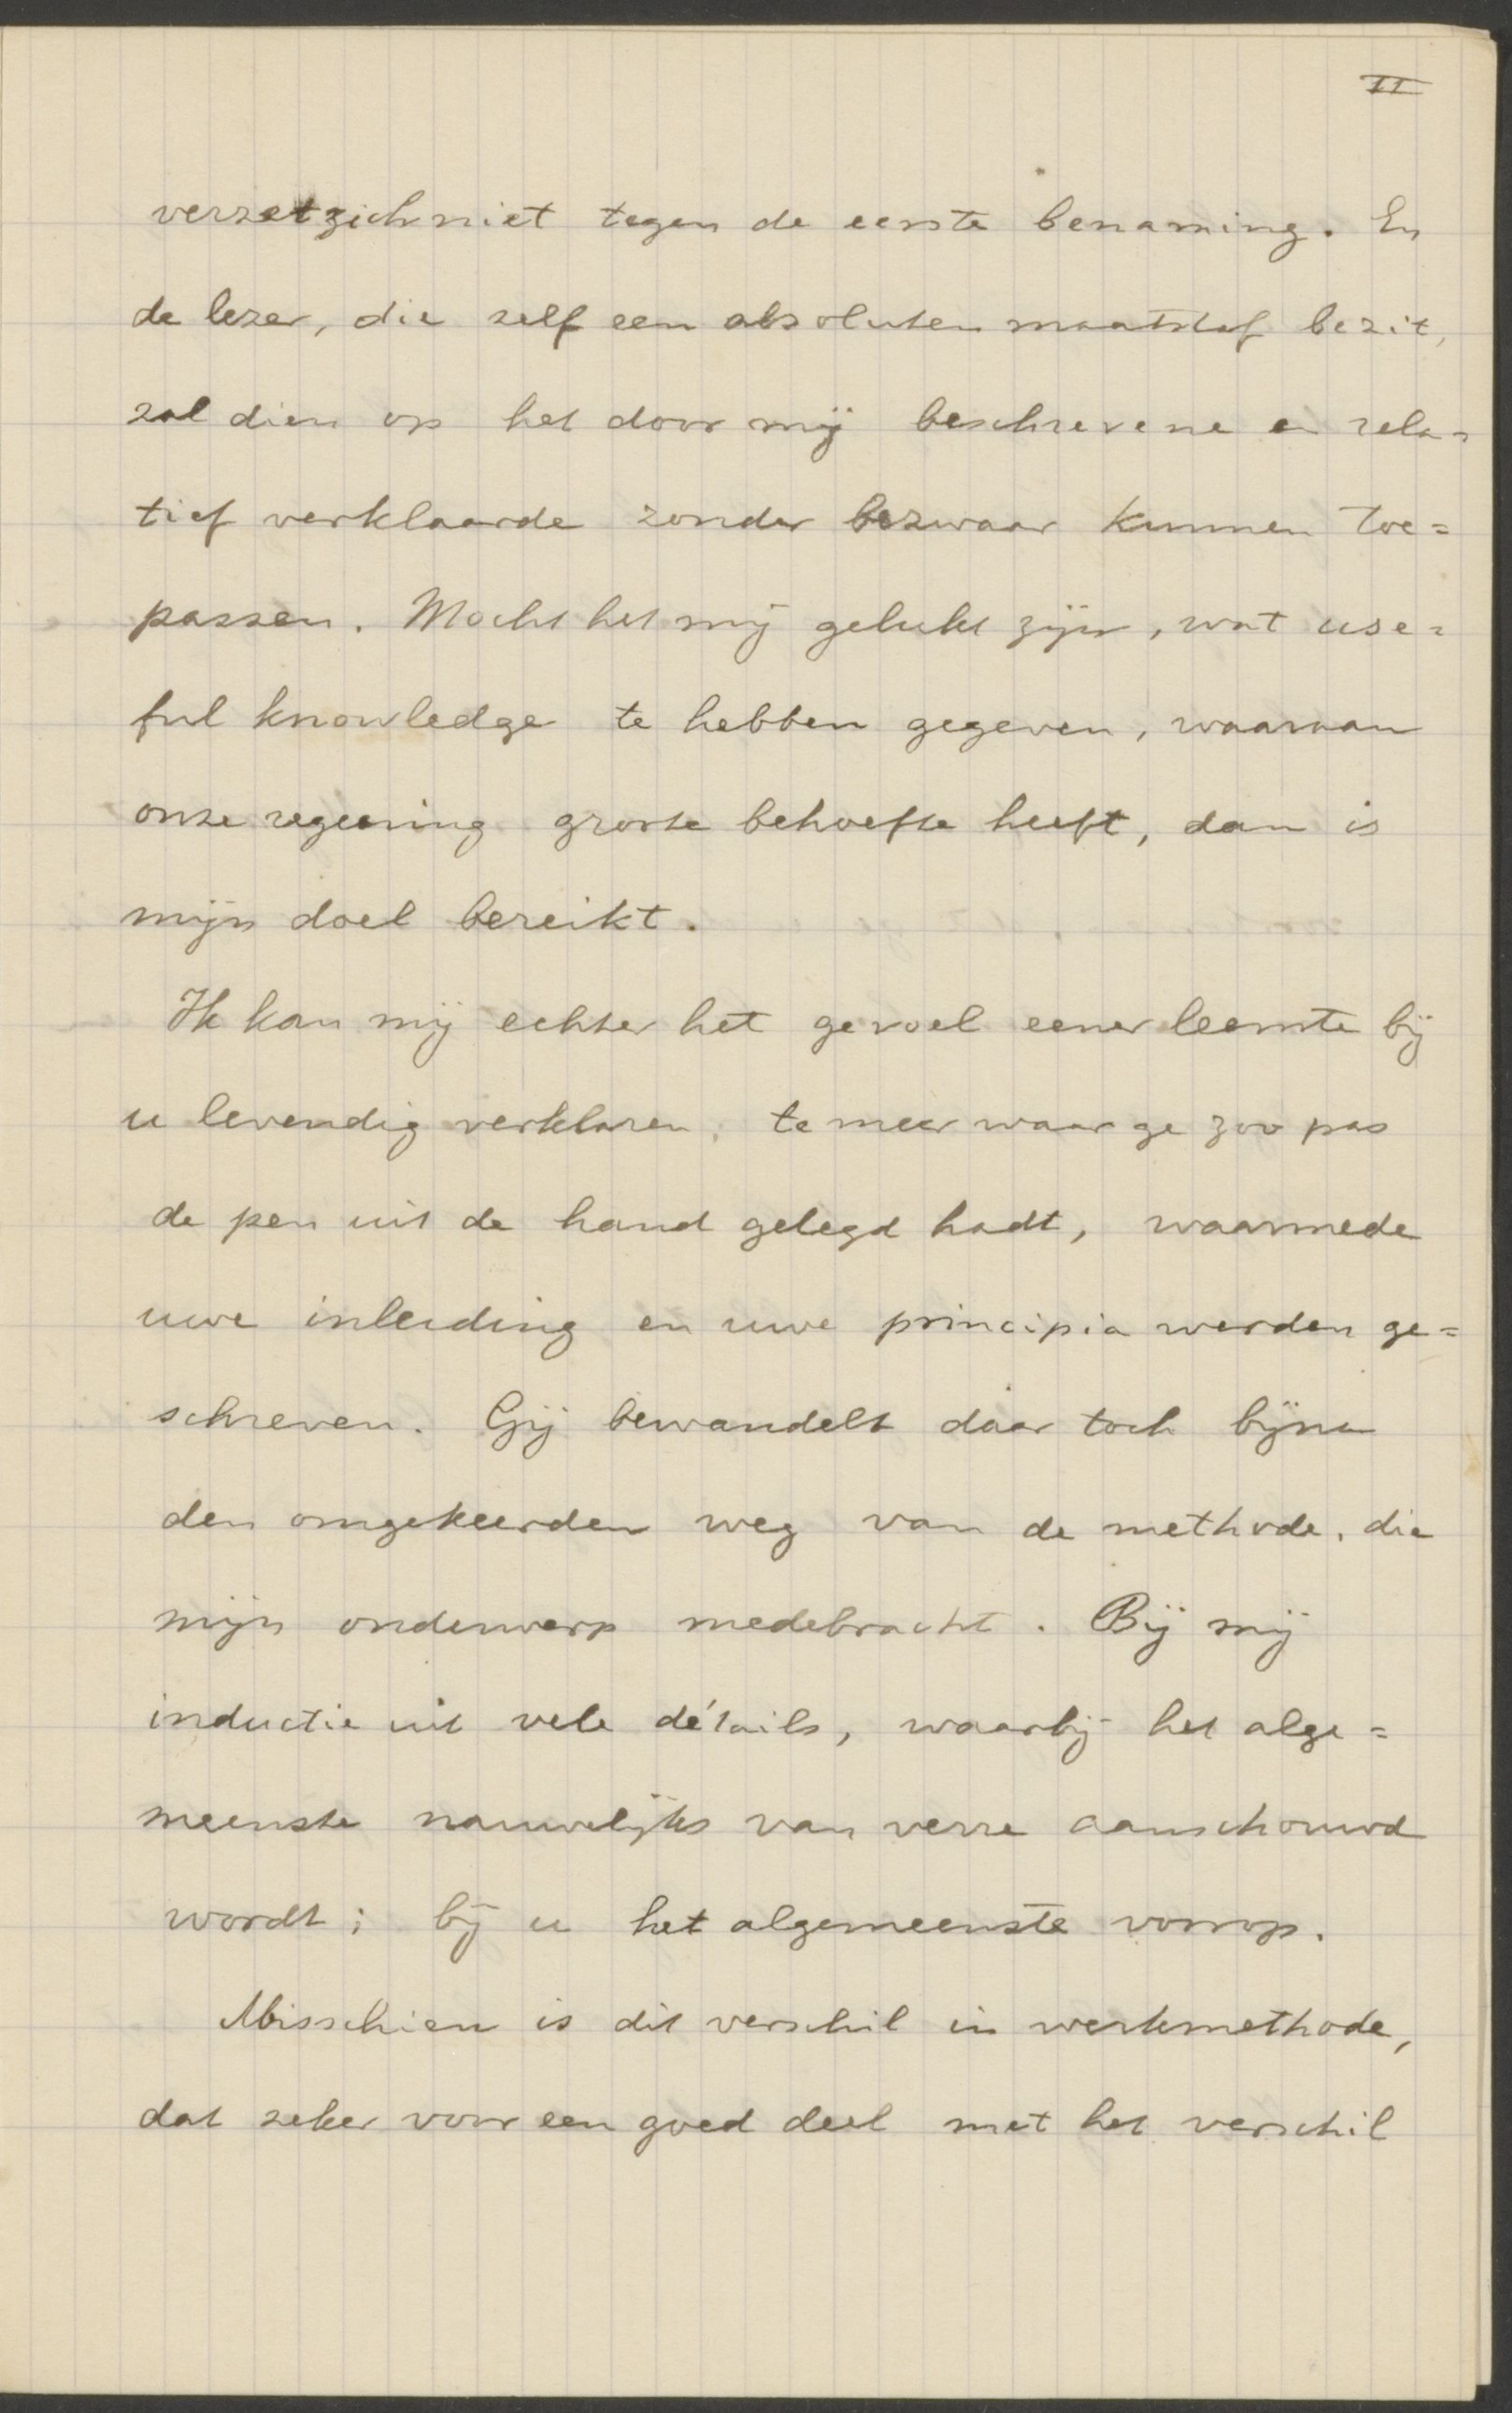 II
verzet zich niet tegen de eerste benaming. En
de lezer, die zelf een absoluten maatstaf bezit,
zal dien op het door mij beschrevene en rela=
tief verklaarde zonder bezwaar kunnen toe=
passen. Mocht het mij gelukt zijn, wat use=
ful knowledge te hebben gegeven, waaraan
onze regeering groote behoefte heeft, dan is
mijn doel bereikt.
Ik kan mij echter het gevoel eener leemte bij
u levendig verklaren, te meer waar ge zoo pas
de pen uit de hand gelegd hadt, waarmede
uwe inleiding en uwe principia werden ge=
schreven. Gij bewandelt daar toch bijna
den omgekeerden weg van de methode, die
mijn onderwerp medebracht. Bij mij
inductie uit vele détails, waarbij het alge=
meenste nauwelijks van verre aanschouwd
wordt; bij u het algemeenste voorop.
Misschien is dit verschil in werkmethode,
dat zeker voor een goed deel met het verschil